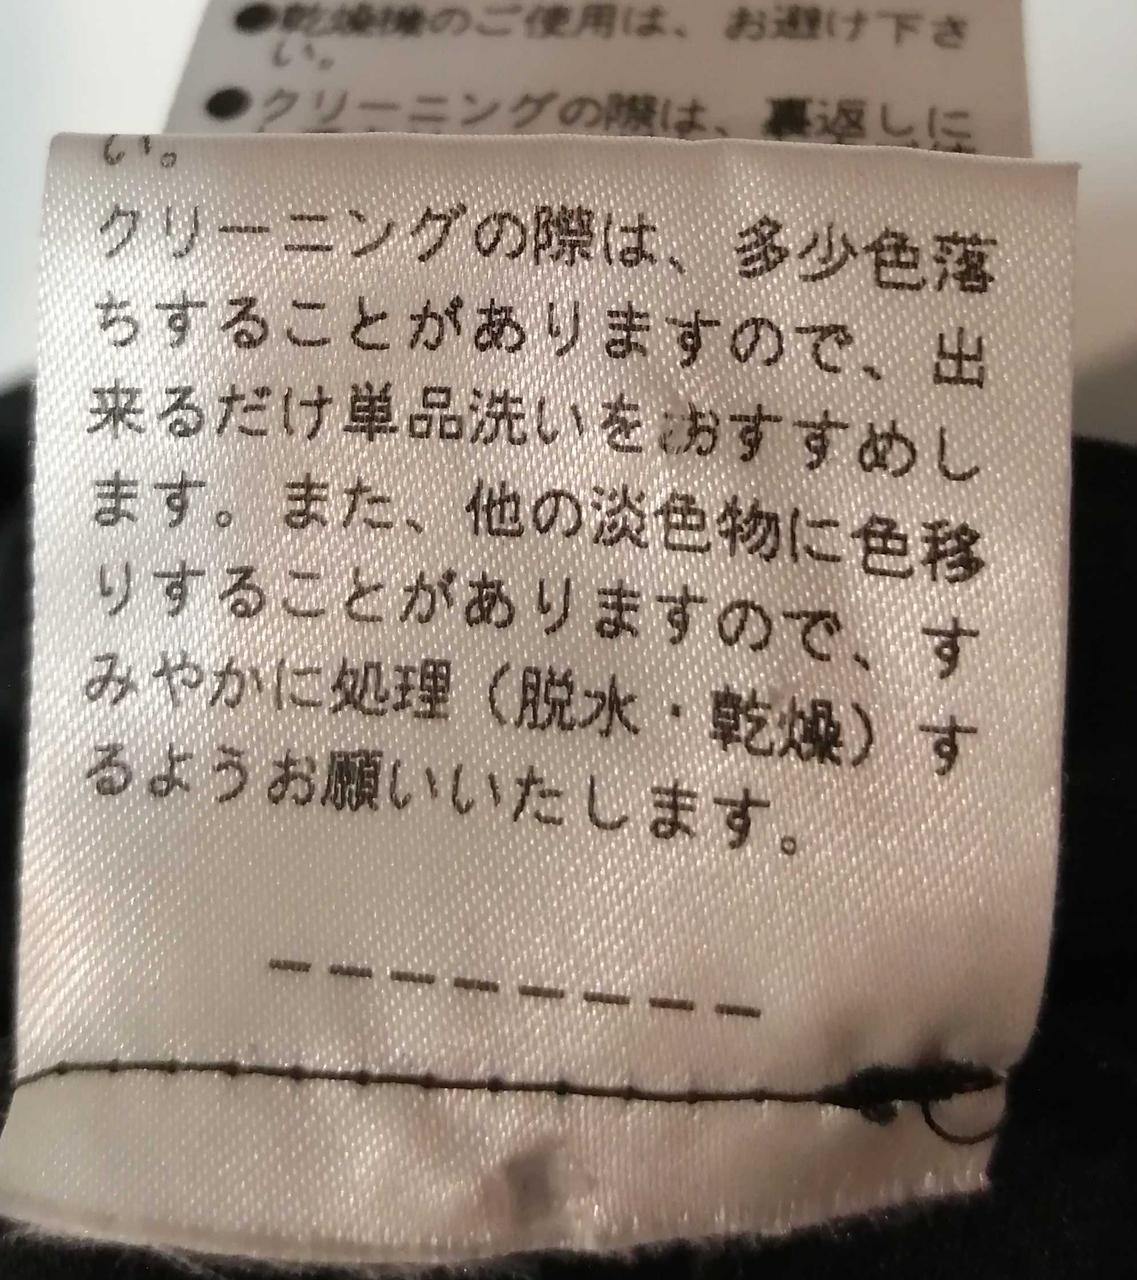 ●乾燥機のご使用は、お避け下さ
い。
●クリーニングの際は、裏返しに
い。
クリーニングの際は、多少色落
ちすることがありますので、出
来るだけ単品洗いをおすすめし
ます。また、他の淡色物に色移
りすることがありますので、す
みやかに処理（脱水・乾燥）す
るようお願いいたします。